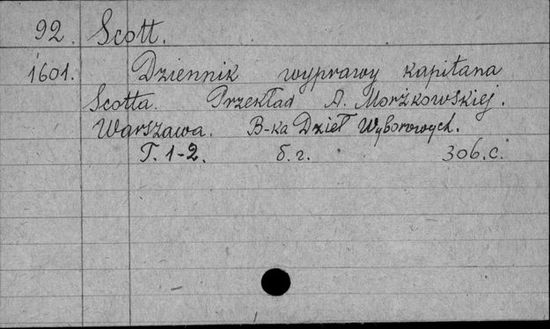 92. Scott.
1601. Dziennik wyprawy kapitana
Scotta. Przekład A. Morżkowskiej.
Warszawa. B-ka Dzieł Wyborowych.
T. 1-2. б. г. 306.с.